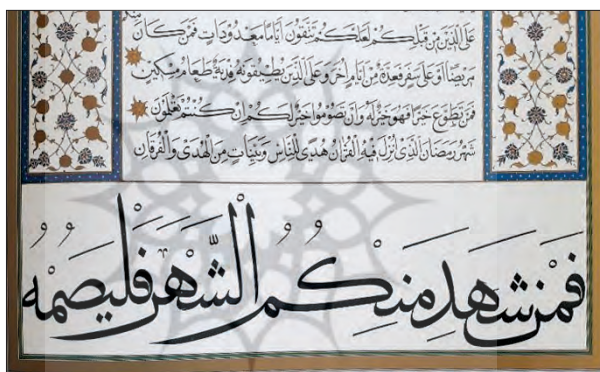 عَلَى الَّذِينَ مِنْ قَبْلِكُمْ لَعَلَّكُمْ تَتَّقُونَ أَيَّامًا مَعْدُودَاتٍ فَمَنْ كَانَ
مَرِيضًا أَوْ عَلَى سَفَرٍ فَعِدَّةٌ مِنْ أَيَّامٍ أُخَرَ وَعَلَى الَّذِينَ يُطِيقُونَهُ فِدْيَةٌ طَعَامُ مِسْكِينٍ
فَمَنْ تَطَوَّعَ خَيْرًا فَهُوَ خَيْرٌ لَهُ وَأَنْ تَصُومُوا خَيْرٌ لَكُمْ إِنْ كُنْتُمْ تَعْلَمُونَ
شَهْرُ رَمَضَانَ الَّذِي أُنْزِلَ فِيهِ الْقُرْآنُ هُدًى لِلنَّاسِ وَبَيِّنَاتٍ مِنَ الْهُدَى وَالْفُرْقَانِ
فَمَنْ شَهِدَ مِنْكُمُ الشَّهْرَ فَلْيَصُمْهُ